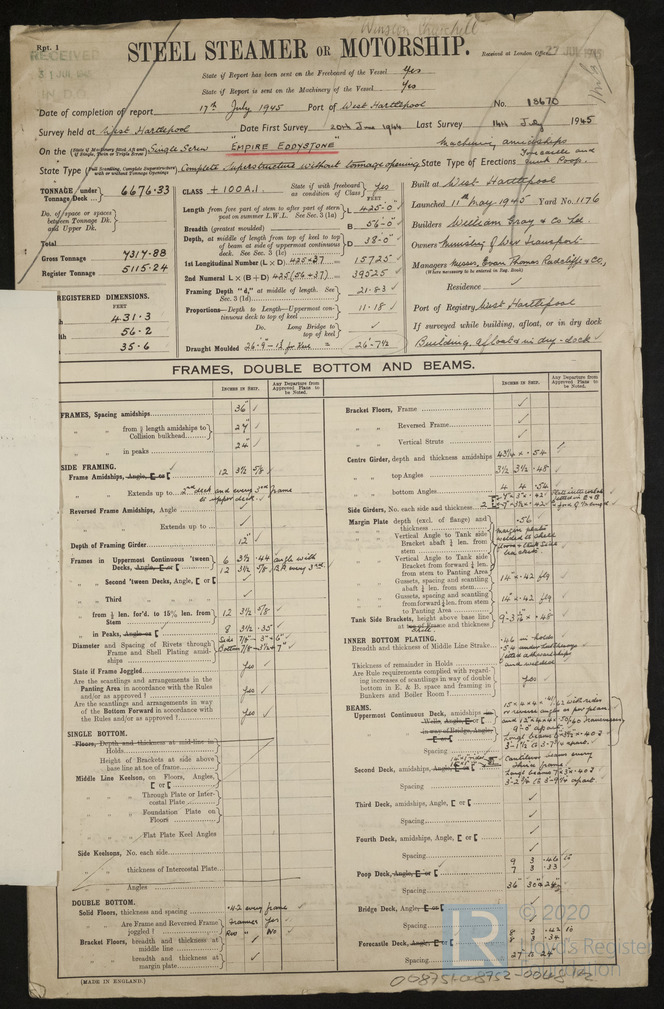 Winston Churchill
Rpt. 1
RECEIVED
31 JUL 1945
IN D.O.
STEEL STEAMER OR MOTORSHIP.
Received at London Office 27 JUL 1945
State if Report has been sent on the Freeboard of the Vessel Yes
State if Report is sent on the Machinery of the Vessel Yes
Date of completion of report 17th July 1945 Port of West Hartlepool No. 18670
Survey held at West Hartlepool Date First Survey 20th June 1944 Last Survey 14th July 1945
On the (State if Machinery fitted Aft and if Single, Twin or Triple Screw) Single Screw "EMPIRE EDDYSTONE" Machinery amidships
State Type (Full Scantling, Complete Superstructure with or without Tonnage Openings) Complete Superstructure without tonnage opening State Type of Erections Forecastle and Poop.
TONNAGE under Tonnage Deck ... 6676.33
Do. of space or spaces between Tonnage Dk. and Upper Dk.
Total
Gross Tonnage 7317.88
Register Tonnage 5115.24
REGISTERED DIMENSIONS.
FEET
431.3
56.2
35.6
CLASS +100A.1. State if with freeboard as condition of Class Yes
FEET
Length from fore part of stem to after part of stern post on summer L.W.L. See Sec. 3 (1a) L 425'-0"
Breadth (greatest moulded) B 56'-0"
Depth, at middle of length from top of keel to top of beam at side of uppermost continuous deck. See Sec. 3 (1c) D 38'-0"
1st Longitudinal Number (L × D) 425×37 15725
2nd Numeral L × (B + D) 425(56+37) 39525
Framing Depth "d," at middle of length. See Sec. 3 (1d) 21.83
Proportions—Depth to Length—Uppermost continuous deck to top of keel 11.18
Do. Long Bridge to top of keel
Draught Moulded 26'-7½"
Built at West Hartlepool
Launched 11th May 1945 Yard No. 1176
Builders William Gray & Co. Ltd.
Owners Ministry of War Transport.
Managers Messrs. Evan Thomas Radcliffe & Co,
(Where necessary to be entered in Reg. Book)
Residence
Port of Registry West Hartlepool
If surveyed while building, afloat, or in dry dock
Building, afloat & in dry-dock
FRAMES, DOUBLE BOTTOM AND BEAMS.
INCHES IN SHIP.
Any Departure from Approved Plans to be Noted.
FRAMES, Spacing amidships 36"
" " from ¾ length amidships to Collision bulkhead 27"
" " in peaks 24"
SIDE FRAMING.
Frame Amidships, Angle, E or [ 12 3½ 5/8
" " Extends up to 2nd deck and every 3rd frame to upper deck.
Reversed Frame Amidships, Angle
" " Extends up to
Depth of Framing Girder 12"
Frames in Uppermost Continuous 'tween Decks, Angle, E or [ 6 3½ .44 angle with
12 3½ 5/8 B.P. every 3rd.
" Second 'tween Decks, Angle, [ or [
" Third " " "
" from ¾ len. for'd. to 15% len. from Stem 12 3½ 5/8
" in Peaks, Angle or [ 8 3½ .35
Diameter and Spacing of Rivets through Frame and Shell Plating amidships
State if Frame Joggled Yes
Are the scantlings and arrangements in the Panting Area in accordance with the Rules and/or as approved ? Yes
Are the scantlings and arrangements in way of the Bottom Forward in accordance with the Rules and/or as approved ? Yes
SINGLE BOTTOM.
Floors, Depth and thickness at mid-line in Holds
Height of Brackets at side above base line at toe of frame
Middle Line Keelson, on Floors, Angles, [ or [
" " Through Plate or Intercostal Plate
" " Foundation Plate on Floors
" " Flat Plate Keel Angles
Side Keelsons, No. each side
" " thickness of Intercostal Plate
" " Angles
DOUBLE BOTTOM.
Solid Floors, thickness and spacing .42 every frame
" " Are Frame and Reversed Frame joggled ? Frames Yes
Rev " No
Bracket Floors, breadth and thickness at middle line
" " breadth and thickness at margin plate
(MADE IN ENGLAND.)
INCHES IN SHIP.
Any Departure from Approved Plans to be Noted.
Bracket Floors, Frame
" " Reversed Frame
" " Vertical Struts
Centre Girder, depth and thickness amidships 43¼ × .54
" " top Angles 3½ 3½ .48
" " bottom Angles 4 4 .54
Side Girders, No. each side and thickness
Margin Plate depth (excl. of flange) and thickness .56
Margin plate welded to shell
" " Vertical Angle to Tank side Bracket abaft ¼ len. from stem
" " Vertical Angle to Tank Side Bracket from forward ¼ len. from stem to Panting Area
" " Gussets, spacing and scantling abaft ¼ len. from stem
" " Gussets, spacing and scantling from forward ¼ len. from stem to Panting Area
Tank Side Brackets, height above base line at toe of Frame and thickness
INNER BOTTOM PLATING.
Breadth and thickness of Middle Line Strake
Thickness of remainder in Holds
Are Rule requirements complied with regarding increases of scantlings in way of double bottom in E. & B. space and framing in Bunkers and Boiler Room ? Yes
BEAMS.
Uppermost Continuous Deck, amidships
" " in way of Bridge, Angle, E or [
Spacing
Second Deck, amidships, Angle, E or [
Cantilever beams every third frame
Spacing
Third Deck, amidships, Angle, [ or [
Spacing
Fourth Deck, amidships, Angle, [ or [
Spacing
Poop Deck, Angle, E or [
Spacing
Bridge Deck, Angle, E or [
Spacing
Forecastle Deck, Angle, E or [
Spacing 27 & 24
© 2020
LR Lloyd's Register Foundation
008751-008752-0048 1/2